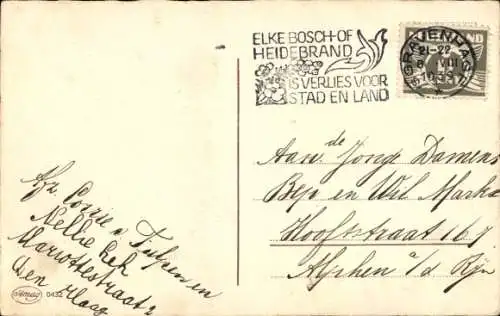 ELKE BOSCH-OF
HEIDEBRAND
IS VERLIES VOOR
STAD EN LAND
'S GRAVENHAGE
21-22
VIII
Aan de Jonge Dames
Bep en Wil Marks
Hooftstraat 167
Alphen a/d Rijn
Afz. Corrie v. Tulpen en
Nellie Hek
Mariottestraat
Den Haag
0432